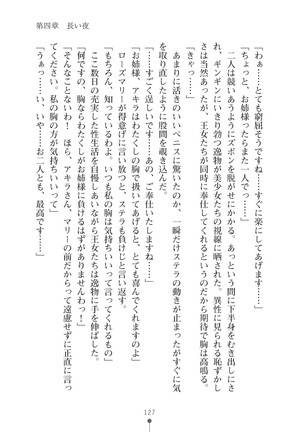 第四章　長い夜
「わぁ……とても窮屈そうですね……すぐに楽にしてあげます……」
「ちょっと、お姉様ったらまた一人で……！」
二人は競い合うようにズボンを脱がせにかかる。あっという間に下半身をむき出しに
され、ギンギンにいきり勃つ逸物が美少女たちの視線に晒された。異性に見られる恥ずかし
さは当然あったが、王女たちが同時に奉仕してくれるというのだから期待で胸は高鳴る。
「きゃっ……」
あまりに活きのいいペニスに驚いたのか、一瞬だけステラの動きが止まったがすぐに気
を取り直したように股間を覗き込んだ。
「……すごく逞しいです……あの、ご奉仕いたしますね……」
「お姉様、アキラはわたくしの胸で扱いてあげると、とても喜んでくれますの」
ローズマリーが得意に言い放ち、ステラも負けじと言い返す。
「もちろん、知っているわよ。いつも私の胸は気持ちいいって言ってくれるもの」
ここ数日の充実した性生活を自慢しあいながら王女たちは逸物に手を伸ばした。
「何ですの！　胸ならわたくしがお姉様に負けるはずがありませんわっ！」
「そんなことないわ！　ほら、アキラさん、マリーの前だからって遠慮せずに正直に言っ
てください。私の胸の方が気持ちいいって」
「うぁっ……い、いや……お二人とも、最高です……」
127